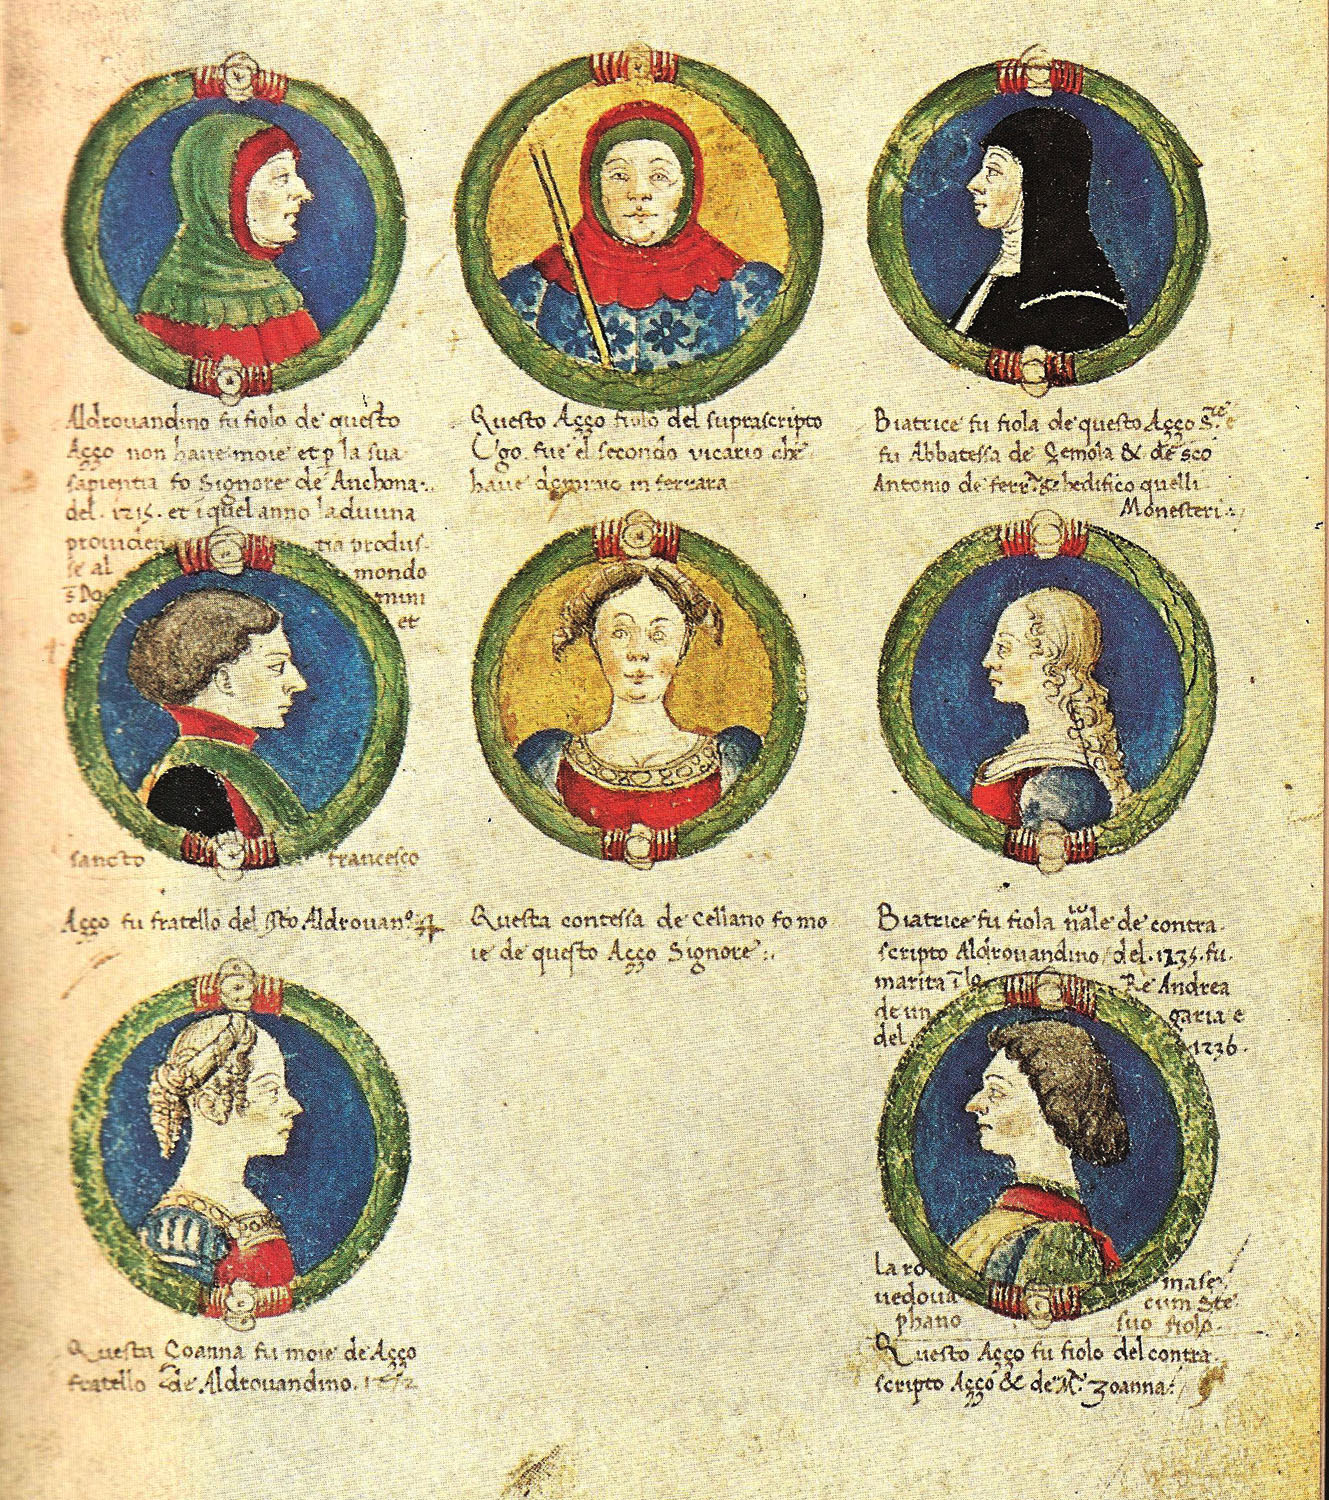 Aldrouandino fu fiolo de questo
Aço non haue moie et p la sua
sapientia fo Signore de Anchona.
del .1215. et i quel anno la diuina
prouiden tia produs-
se al mondo
s Do mini
co et
sancto francesco
Questo Aço fiolo del suprascripto
Ugo fue el secondo vicario che
haue dominio in ferrara
Biatrice fu fiola de questo Aço S.re
fu Abbatessa de Gemola & de sco
Antonio de ferr. hedifico quelli
Monesteri:
Aço fu fratello del Aldrouan.o
Questa contessa de Celiano fo mo
ie de questo Aço Signore:
Biatrice fu fiola de contra
scripto Aldrouandino del .1235. fu
marita i Re Andrea
de un garia e
del 1236.
la ro mase
uedoua cum Ste
phano suo fiolo.
Questa Coanna fu moie de Aço
fratello de Aldrouandino.
Questo Aço fu fiolo del contra
scripto Aço & de M.a Zoanna: